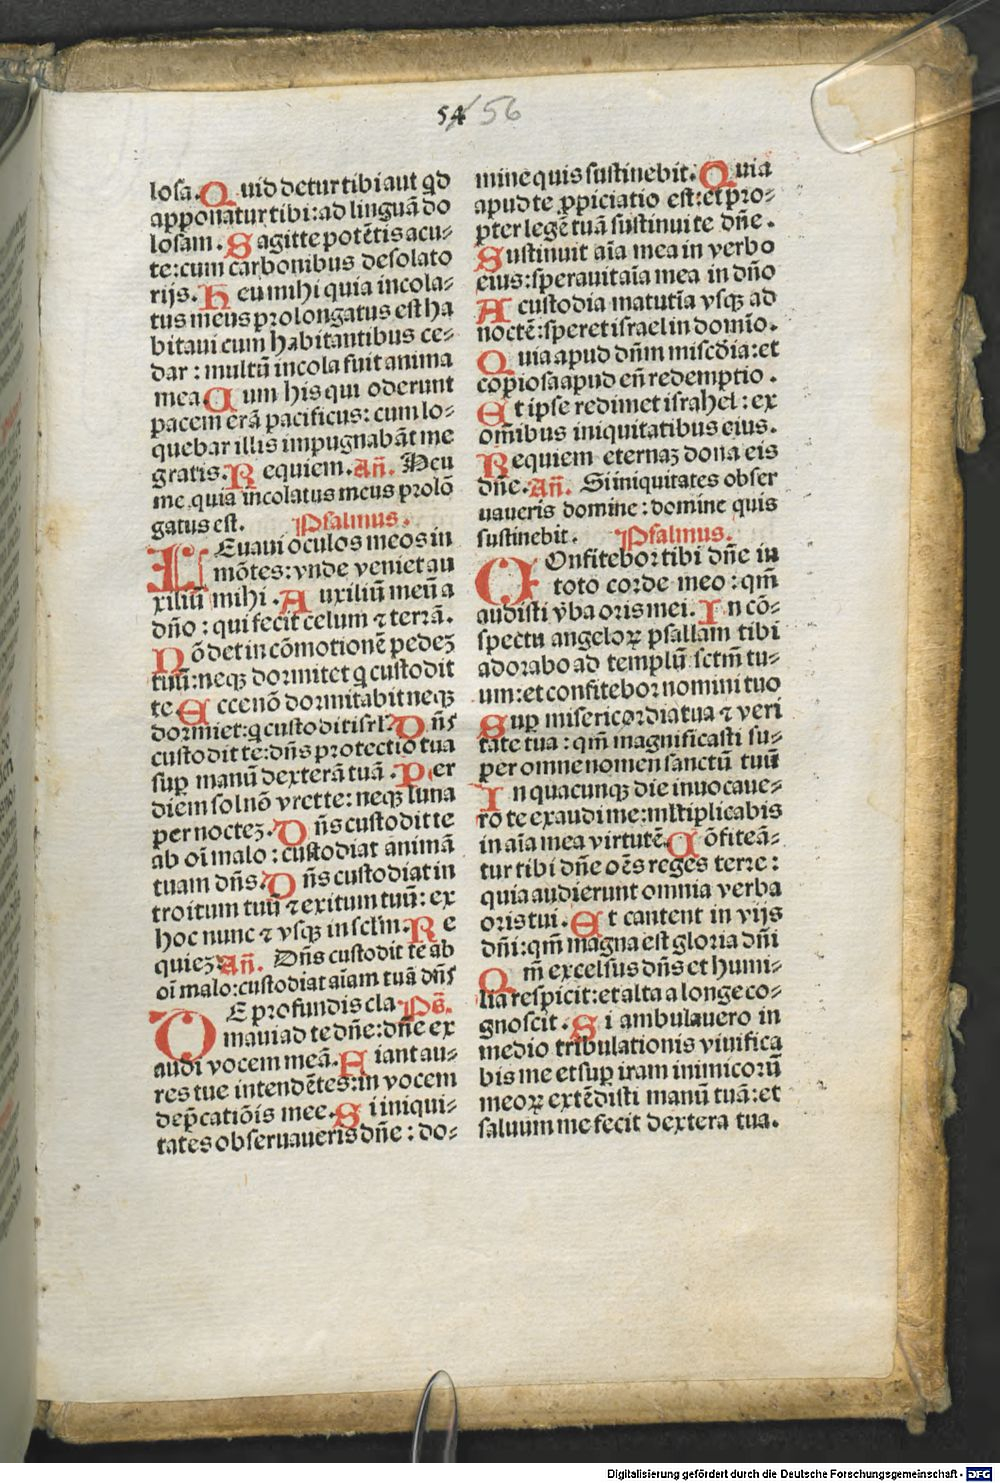 54 56
losa. Quid detur tibi aut qd
apponatur tibi: ad linguā do
losam. Sagitte potētis acu⸗
te: cum carbonibus desolato
rijs. Heu mihi quia incola⸗
tus meus prolongatus est ha
bitaui cum habitantibus ce⸗
dar: multū incola fuit anima
mea. Cum his qui oderunt
pacem erā pacificus: cum lo⸗
quebar illis impugnabāt me
gratis. Requiem. Añ. Heu
me quia incolatus meus prolō
gatus est. Psalmus.
LEuaui oculos meos in
mōtes: vnde veniet au
xiliū mihi. Auxiliū meū a
dño: qui fecit celum ⁊ terrā.
Nō det in cōmotionē pedeꝫ
tuū: neqꝫ dormitet q custodit
te. Ecce nō dormitabit neqꝫ
dormiet: q custodit isrl. Dñs
custodit te: dñs protectio tua
suꝑ manū dexterā tuā. Per
diem sol nō vret te: neqꝫ luna
per nocteꝫ. Dñs custodit te
ab oī malo: custodiat animā
tuam dñs. Dñs custodiat in
troitum tuū ⁊ exitum tuū: ex
hoc nunc ⁊ vsqꝫ in sclm. Re
quieꝫ. Añ. Dñs custodit te ab
oī malo: custodiat aīam tuā dñs
DE profundis cla Ps̄.
maui ad te dñe: dñe ex
audi vocem meā. Fiant au⸗
res tue intendētes: in vocem
dep̄catiōis mee. Si iniqui⸗
tates obseruaueris dñe: do⸗
mine quis sustinebit. Quia
apud te ꝓpiciatio est: et pro⸗
pter legē tuā sustinui te dñe.
Sustinuit aīa mea in verbo
eius: sperauit aīa mea in dño
A custodia matutīa vsqꝫ ad
noctē: speret israel in domīo.
Quia apud dñm miscdia: et
copiosa apud eū redemptio.
Et ipse redimet israhel: ex
om̄ibus iniquitatibus eius.
Requiem eternaꝫ dona eis
dñe. Añ. Si iniquitates obser
uaueris domine: domine quis
sustinebit. Psalmus.
COnfitebor tibi dñe in
toto corde meo: qm̄
audisti v̄ba oris mei. In cō⸗
spectu angeloꝝ psallam tibi
adorabo ad templū sctm̄ tu⸗
um: et confitebor nomini tuo
Suꝑ misericordia tua ⁊ veri
tate tua: qm̄ magnificasti su⸗
per omne nomen sanctū tuū
In quacunqꝫ die inuocaue⸗
ro te exaudi me: mltiplicabis
in aīa mea virtutē. Cōfiteā⸗
tur tibi dñe oēs reges terre:
quia audierunt omnia verba
oris tui. Et cantent in vijs
dñi: qm̄ magna est gloria dñi
Qm̄ excelsus dñs et humi⸗
lia respicit: et alta a longe co⸗
gnoscit. Si ambulauero in
medio tribulationis viuifica
bis me et suꝑ iram inimicorū
meoꝝ extēdisti manū tuā: et
saluum me fecit dextera tua.
Digitalisierung gefördert durch die Deutsche Forschungsgemeinschaft - DFG